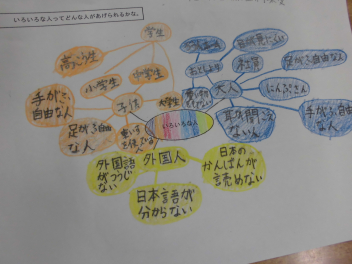 いろいろな人ってどんな人があげられるかな。
学生
高こう生
小学生
中学生
大学生
子供
手がふ
自由な人
足がふ自由
な人
いろいろな人
大人
お年より
足がふ自由な人
にんぷさん
手がふ自由
な人
耳が聞こえ
ない人
外国人
外国語
がつうじ
ない
日本語が
分からない
日本の
かんばんが
読めない